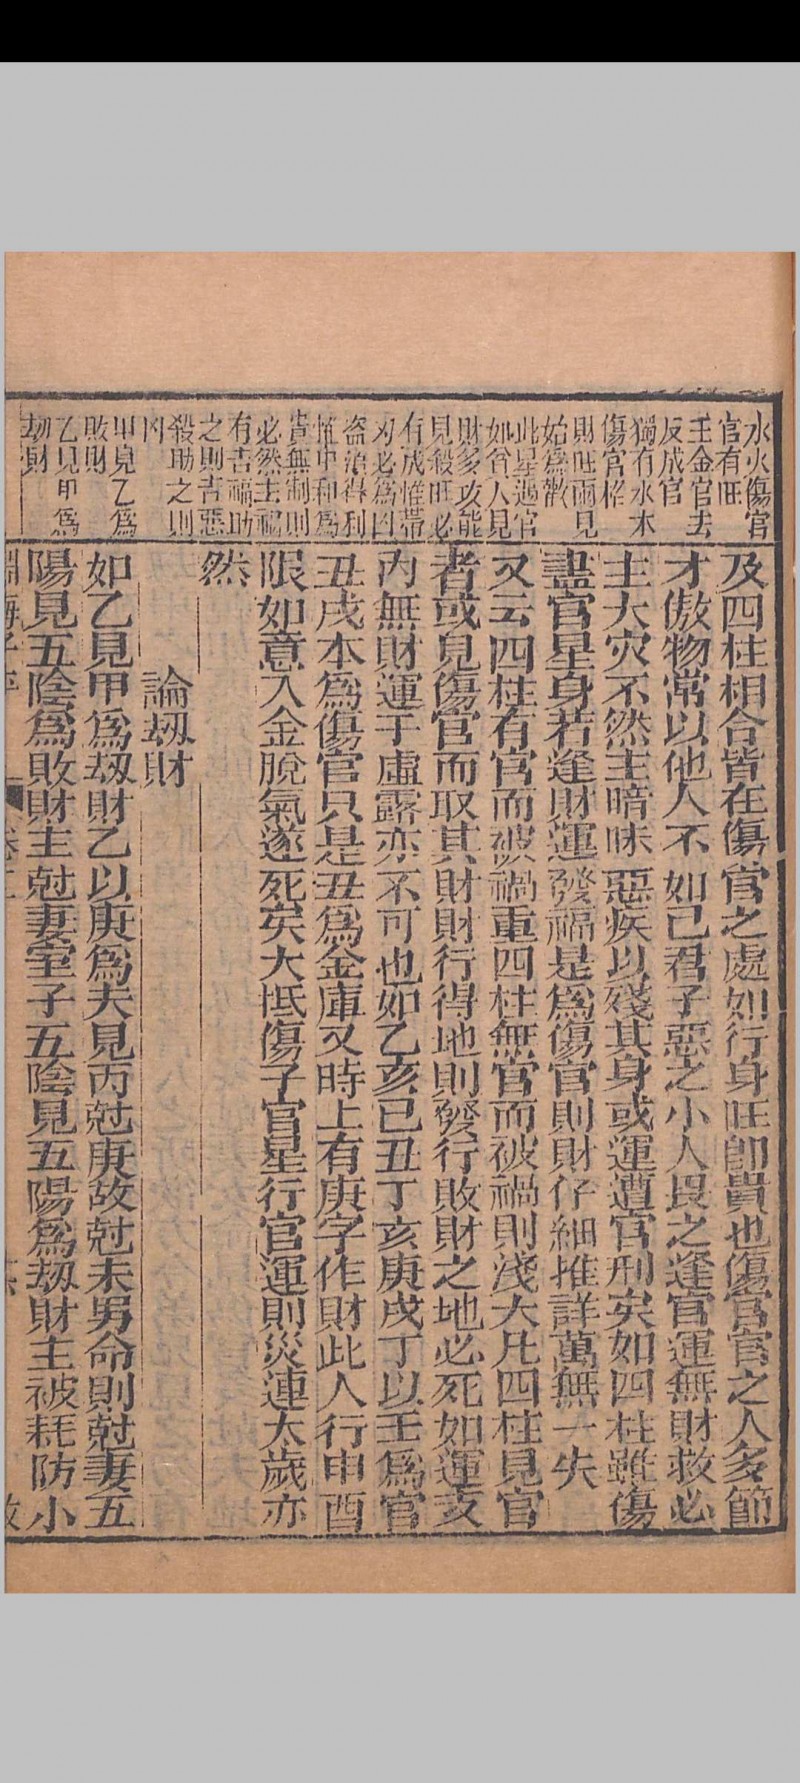 水火傷官
官有旺
土金官去
反成官
獨有水木
傷官格
財旺兩見
始為歡
此星遇官
如領人見
財多攻能
見殺旺必
有成惟帶
刃必為凶
盗治得利
惟中和為
貴無制則
必然主禍
有吉福助
之則吉惡
殺助之則
凶
甲見乙爲
敗財
乙見甲爲
刼財
及四柱相合皆在傷官之處如行身旺卽貴也傷官官之人多節
才傲物常以他人不如己君子惡之小人畏之逢官運無財救必
主大灾不然主暗昧惡疾以殘其身或運遭官刑矣如四柱雖傷
盡官星身若逢財運發福是爲傷官則財仔細推詳萬無一失
又云四柱有官而被禍重四柱無官而被禍則淺大凡四柱見官
者或見傷官而取其財財行得地則發行敗財之地必死如運支
內無財運于虛露亦不可也如乙亥己丑丁亥庚戌丁以壬爲官
丑戌本爲傷官只是丑爲金庫又時上有庚字作財此人行申酉
限如意入金脫氣遂死矣大抵傷子官星行官運則災連太歲亦
然
論刼財
如乙見甲爲刼財乙以庚爲夫見丙尅庚故尅夫男命則尅妻五
陽見五陰爲敗財主尅妻室子五陰見五陽爲刼財主被耗防小
淵海子平